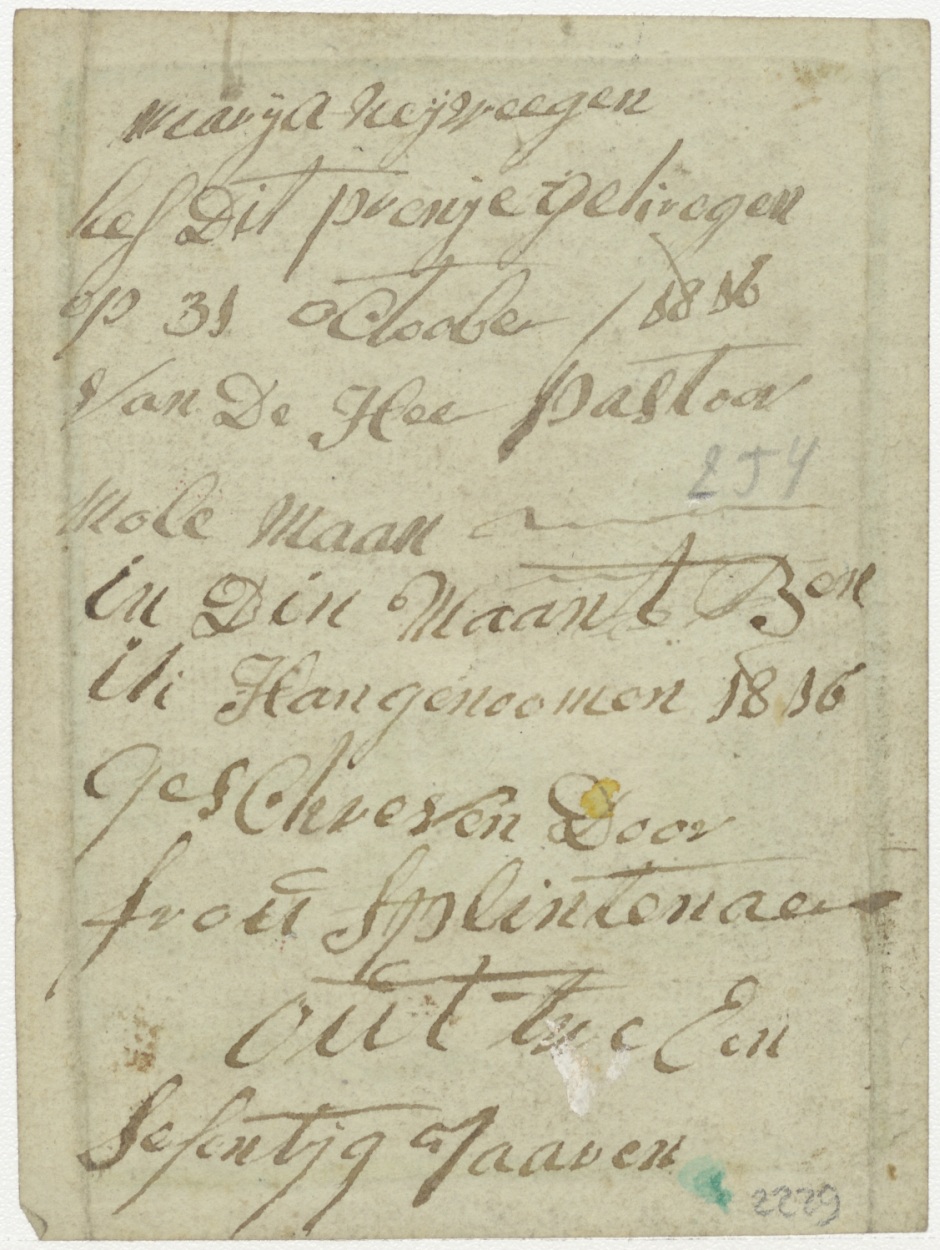 Marya Neijweegen
hef Dit prenje gekregen
op 31 october / 1816
Van De Heer pastoor
254
Mole Maan
in Din Maant Ben
ik Hangenoomen 1816
geschreven Door
frou Splintenaer
out twe En
sesentijg Jaaren
2229